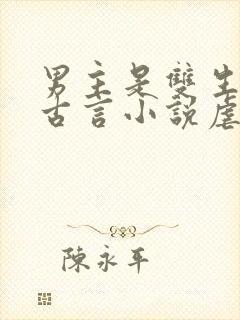 男主是雙生
古言小說虐
陳永平